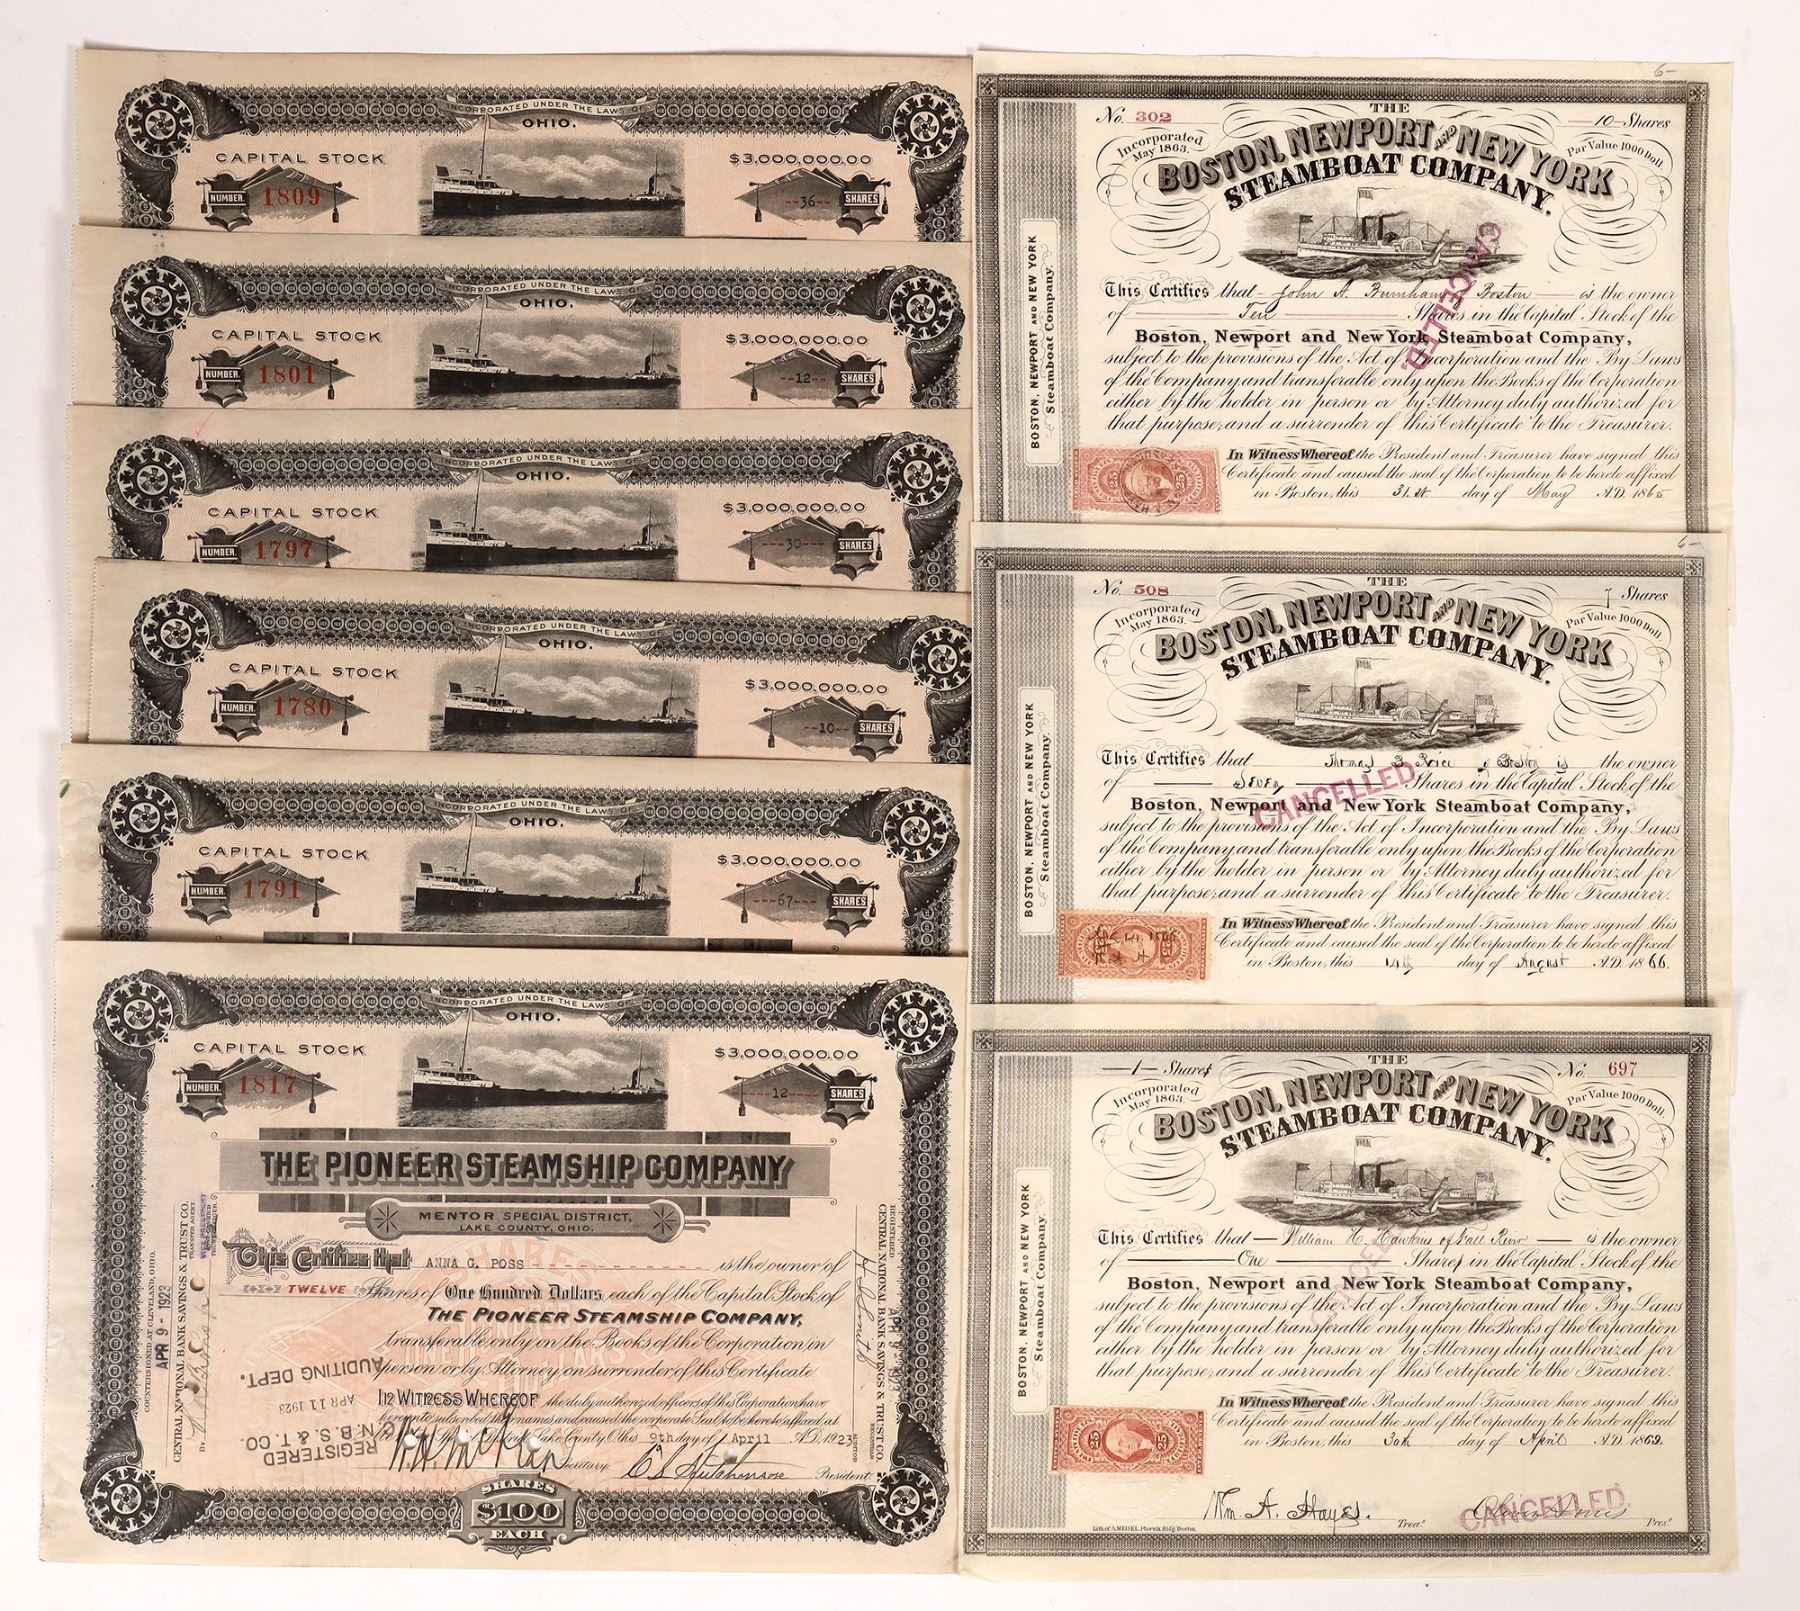 INCORPORATED UNDER THE LAWS OF
OHIO.
CAPITAL STOCK
$3,000,000.00
NUMBER 1809
--36-- SHARES
INCORPORATED UNDER THE LAWS OF
OHIO.
CAPITAL STOCK
$3,000,000.00
NUMBER 1801
--12-- SHARES
INCORPORATED UNDER THE LAWS OF
OHIO.
CAPITAL STOCK
$3,000,000.00
NUMBER 1797
--30-- SHARES
INCORPORATED UNDER THE LAWS OF
OHIO.
CAPITAL STOCK
$3,000,000.00
NUMBER 1780
--10-- SHARES
INCORPORATED UNDER THE LAWS OF
OHIO.
CAPITAL STOCK
$3,000,000.00
NUMBER 1791
---67--- SHARES
INCORPORATED UNDER THE LAWS OF
OHIO.
CAPITAL STOCK
$3,000,000.00
NUMBER 1817
---12--- SHARES
THE PIONEER STEAMSHIP COMPANY
MENTOR SPECIAL DISTRICT,
LAKE COUNTY, OHIO.
This Certifies that ANNA G. POSS is the owner of
TWELVE Shares of One Hundred Dollars each of the Capital Stock of
THE PIONEER STEAMSHIP COMPANY,
transferable only on the Books of the Corporation in
person or by Attorney on surrender of this Certificate
In Witness Whereof the duly authorized officers of this Corporation have
hereunto subscribed their names and caused the corporate Seal to be hereto affixed at
Lake County, Ohio this 9th day of April A.D. 1923
Secretary. President
SHARES
$100
EACH
COUNTERSIGNED AT CLEVELAND, OHIO.
APR 9 - 1923
CENTRAL NATIONAL BANK SAVINGS & TRUST CO.
TRANSFER AGENT
By
REGISTERED
CENTRAL NATIONAL BANK SAVINGS & TRUST CO.
REGISTRAR
APR 9 - 1923
REGISTERED
C.N.B.S. & T. CO.
APR 11 1923
AUDITING DEPT.
6-
No. 302
10 Shares
Incorporated
May 1863.
Par Value 1000 Doll.
THE
BOSTON, NEWPORT AND NEW YORK
STEAMBOAT COMPANY.
This Certifies that John A. Burnham Boston is the owner
of Ten Shares in the Capital Stock of the
Boston, Newport and New York Steamboat Company,
subject to the provisions of the Act of Incorporation and the By Laws
of the Company and transferable only upon the Books of the Corporation
either by the holder in person or by Attorney duly authorized for
that purpose, and a surrender of this Certificate to the Treasurer.
In Witness Whereof the President and Treasurer have signed this
Certificate and caused the seal of the Corporation to be hereto affixed
in Boston, this 31.st day of May A.D. 1865
BOSTON, NEWPORT AND NEW YORK
Steamboat Company.
CANCELLED.
25 25
6-
No. 508
7 Shares
Incorporated
May 1863.
Par Value 1000 Doll.
THE
BOSTON, NEWPORT AND NEW YORK
STEAMBOAT COMPANY.
This Certifies that Thomas B. Price of Boston is the owner
of Seven Shares in the Capital Stock of the
Boston, Newport and New York Steamboat Company,
subject to the provisions of the Act of Incorporation and the By Laws
of the Company and transferable only upon the Books of the Corporation
either by the holder in person or by Attorney duly authorized for
that purpose, and a surrender of this Certificate to the Treasurer.
In Witness Whereof the President and Treasurer have signed this
Certificate and caused the seal of the Corporation to be hereto affixed
in Boston, this 14th day of August A.D. 1866.
BOSTON, NEWPORT AND NEW YORK
Steamboat Company.
CANCELLED
1 Shares
No. 697
Incorporated
May 1863.
Par Value 1000 Doll.
THE
BOSTON, NEWPORT AND NEW YORK
STEAMBOAT COMPANY.
This Certifies that William H. Hawkins of Fall River is the owner
of One Shares in the Capital Stock of the
Boston, Newport and New York Steamboat Company,
subject to the provisions of the Act of Incorporation and the By Laws
of the Company and transferable only upon the Books of the Corporation
either by the holder in person or by Attorney duly authorized for
that purpose, and a surrender of this Certificate to the Treasurer.
In Witness Whereof the President and Treasurer have signed this
Certificate and caused the seal of the Corporation to be hereto affixed
in Boston, this 30th day of April A.D. 1869.
BOSTON, NEWPORT AND NEW YORK
Steamboat Company.
CANCELLED
25 25
Wm A. Hayes. Treas.
Pres.
CANCELLED.
Lith. of A. MEISEL, Phoenix Bldg. Boston.